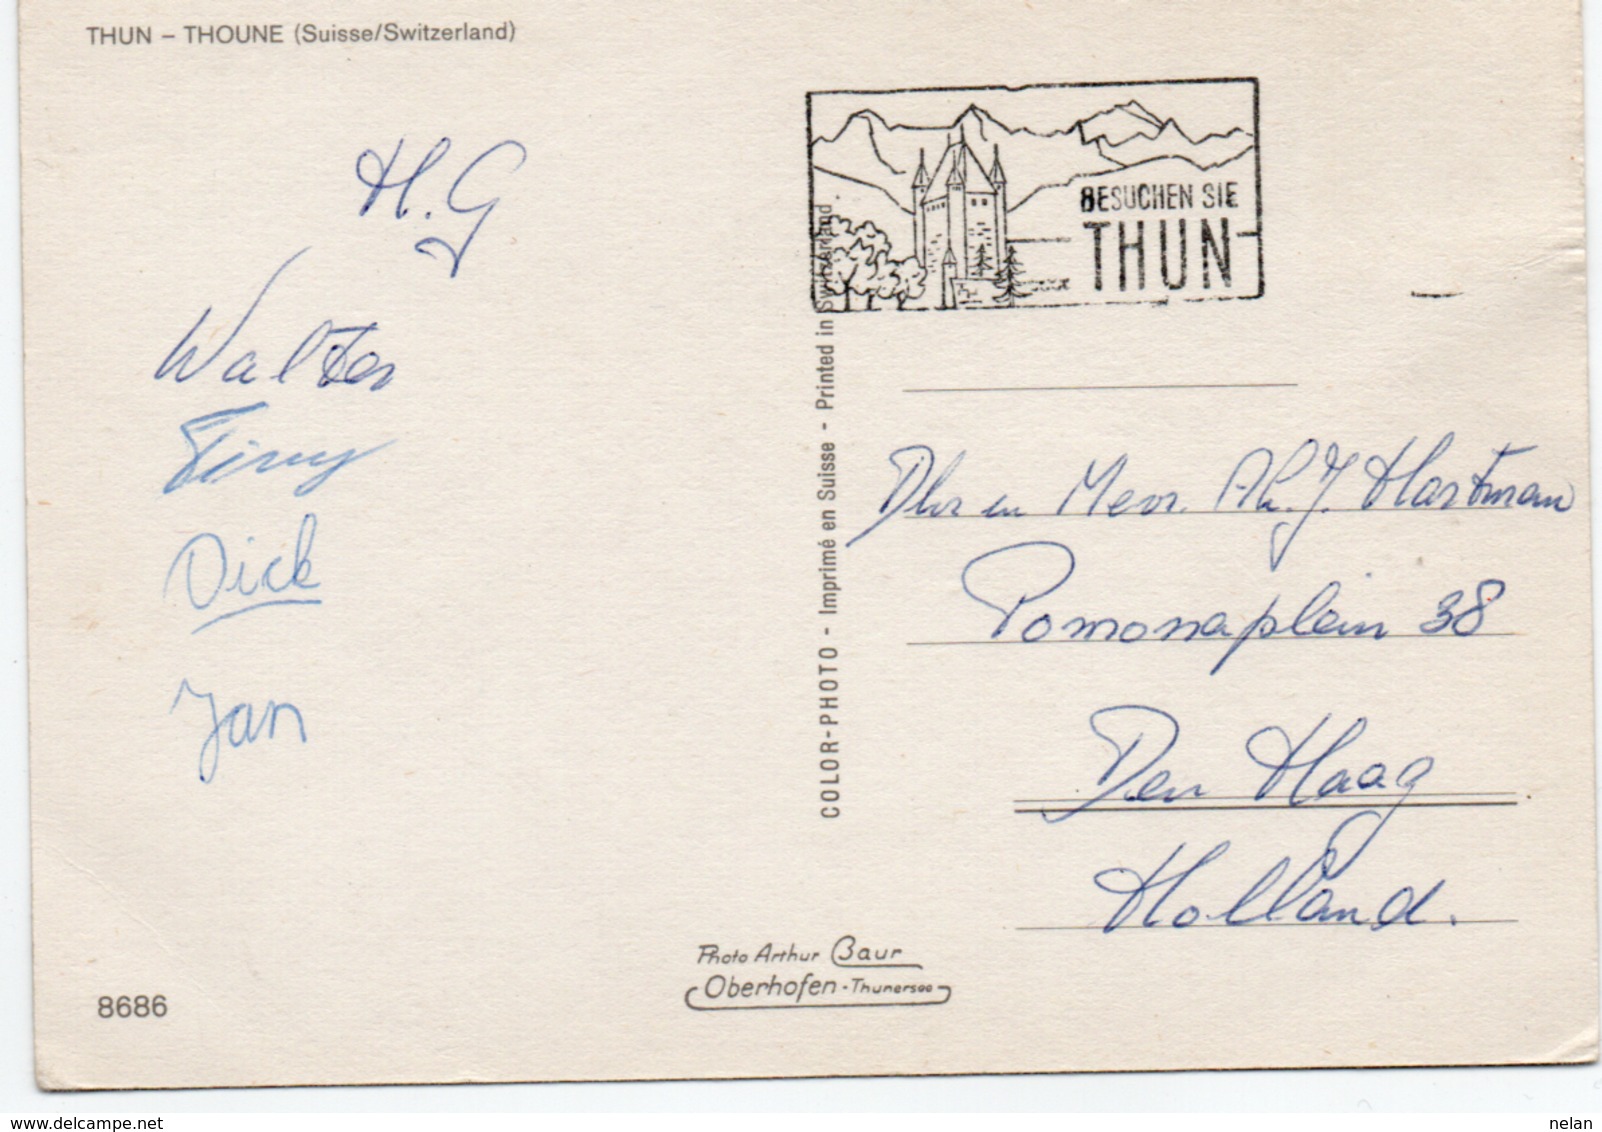 THUN – THOUNE (Suisse/Switzerland)
H.G
Walter
Tiny
Dick
Jan
8686
BESUCHEN SIE
THUN
COLOR-PHOTO - Imprimé en Suisse - Printed in Switzerland.
Dhr en Mevr. Ah. J. Hartman
Pomonaplein 38
Den Haag
Holland.
Photo Arthur Baur
Oberhofen - Thunersee
www.delcampe.net
nelan